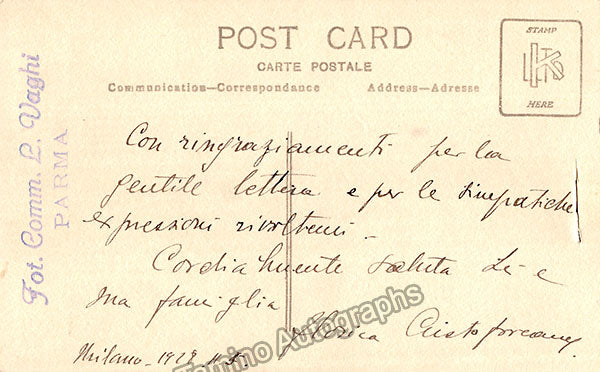 POST CARD
CARTE POSTALE
Communication—Correspondance
Address—Adresse
STAMP
HERE
Fot. Comm. L. Vaghi
PARMA
Con ringraziamenti per la
gentile lettera e per le simpatiche
expressioni rivoltemi -
Cordialmente saluta Lei e
sua famiglia
Florica Cristoforeanu
Milano - 19
Tamino Autographs